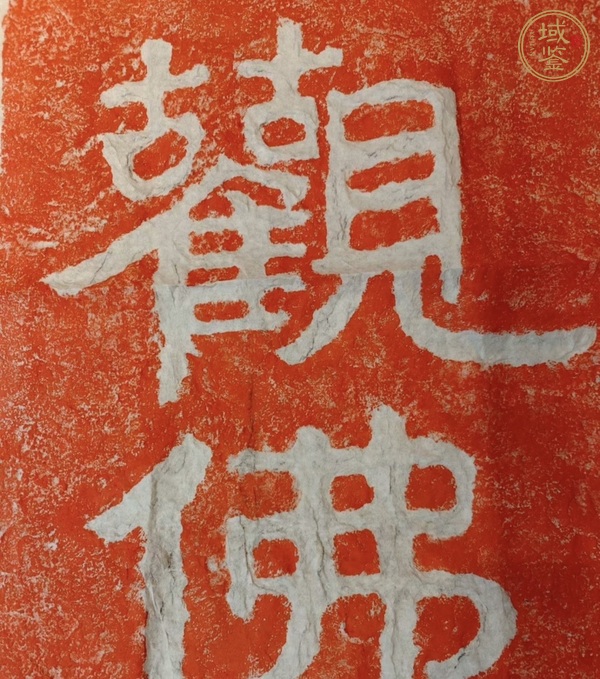 觀
佛
域鉴